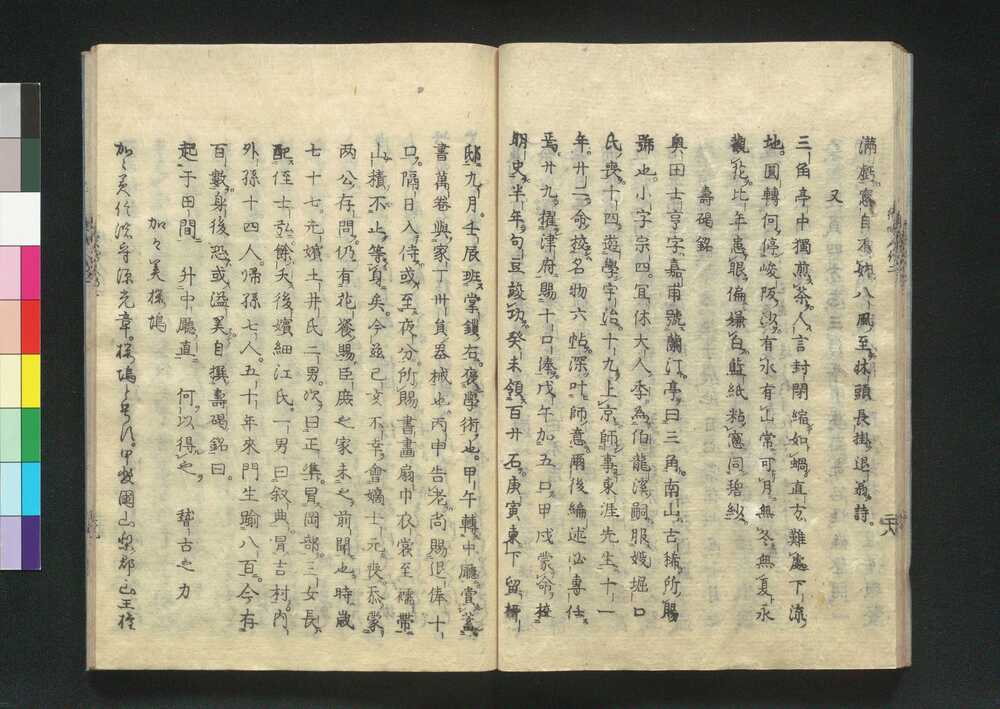 滿虧窓自不妨八風至牀頭長掛退翁詩。
又
三角亭中獨煎茶。人言封閉縮如蝸直方難處下流
地。圓轉何停峻阪沙有氷有山常可月無冬無夏永
觀花比年患眼偏嫌白藍紙粘窓同碧紗
壽碣銘
奥田士亨字嘉甫號蘭汀亭曰三角南山古稀所賜
號也小字宗四冝休大人季為伯龍溪嗣服嫂堀口
氏喪十四遊學宇治十九上京師事東涯先生十一
年廿二命挍名物六帖深叶師意爾後編述必專任
焉廿九擢津府賜十口俸戊午加五口甲戌蒙命挍
明史半年句豆竣功癸未領百廿石。庚寅東下留
邸九月壬辰班掌鎖右褒學術也甲午轉中廳賞蓋
書萬卷與家丁卅負器械也丙申告老尚賜退俸十
口隔日入侍或至夜分所賜書畫扇巾衣裳至襦帶
山積不止等身矣今茲己亥不幸會嫡士元喪忝蒙
两公存問仍有花餐賜臣庶之家未之前聞也時歳
七十七元嬪土井氏二男次曰正準冒岡部三女長
配侄士弘餘夭後嬪細江氏一男曰叙典冒吉村内
外孫十四人歸孫七人五十年來門生踰八百今存
百數身後恐或溢美自撰壽碣銘曰
起于田間 升中廳直 何以得之 稽古之力
加々美櫻塢
加々美信濃守源光章。櫻塢と号ス。甲斐國山梨郡山王権